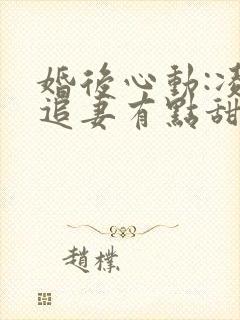 婚後心動:凌
追妻有點甜
趙樸